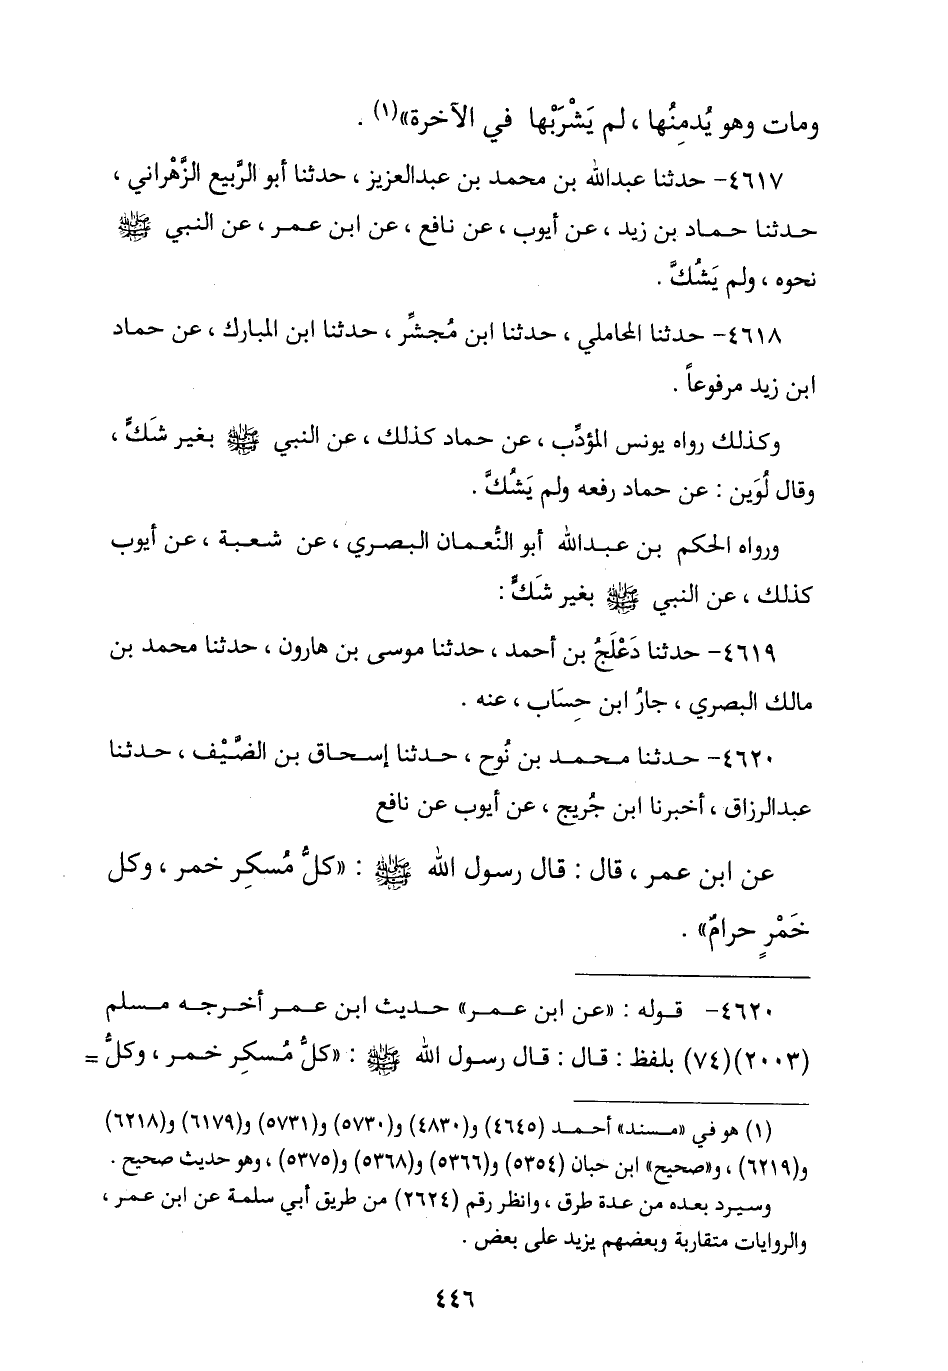 ومات وهو يُدمِنُها ، لم يَشْرَبْها في الآخرة»(١) .
٤٦١٧- حدثنا عبدالله بن محمد بن عبدالعزيز ، حدثنا أبو الرَّبيع الزَّهْراني ،
حدثنا حماد بن زيد ، عن أيوب ، عن نافع ، عن ابن عمر ، عن النبي ﷺ
نحوه ، ولم يَشُكَّ .
٤٦١٨- حدثنا المحاملي ، حدثنا ابن مُجشِّر ، حدثنا ابن المبارك ، عن حماد
ابن زيد مرفوعاً .
وكذلك رواه يونس المؤدِّب ، عن حماد كذلك ، عن النبي ﷺ بغير شَكٍّ ،
وقال لُوَين : عن حماد رفعه ولم يَشُكَّ .
ورواه الحكم بن عبدالله أبو النُّعمان البصري ، عن شعبة ، عن أيوب
كذلك ، عن النبي ﷺ بغير شَكٍّ :
٤٦١٩- حدثنا دَعْلَجُ بن أحمد ، حدثنا موسى بن هارون ، حدثنا محمد بن
مالك البصري ، جارُ ابن حِسَاب ، عنه .
٤٦٢٠- حدثنا محمد بن نُوح ، حدثنا إسحاق بن الضَّيْف ، حدثنا
عبدالرزاق ، أخبرنا ابن جُريج ، عن أيوب عن نافع
عن ابن عمر ، قال : قال رسول الله ﷺ : «كلُّ مُسكِر خمر ، وكل
خَمْرٍ حرامٌ» .
٤٦٢٠- قوله : «عن ابن عمر» حديث ابن عمر أخرجه مسلم
(٢٠٠٣)(٧٤) بلفظ : قال : قال رسول الله ﷺ : «كلُّ مُسكِر خمر ، وكلُّ =
(١) هو في «مسند» أحمد (٤٦٤٥) و(٤٨٣٠) و(٥٧٣٠) و(٥٧٣١) و(٦١٧٩) و(٦٢١٨)
و(٦٢١٩) ، و«صحيح» ابن حبان (٥٣٥٤) و(٥٣٦٦) و(٥٣٦٨) و(٥٣٧٥) ، وهو حديث صحيح .
وسيرد بعده من عدة طرق ، وانظر رقم (٢٦٢٤) من طريق أبي سلمة عن ابن عمر ،
والروايات متقاربة وبعضهم يزيد على بعض .
٤٤٦